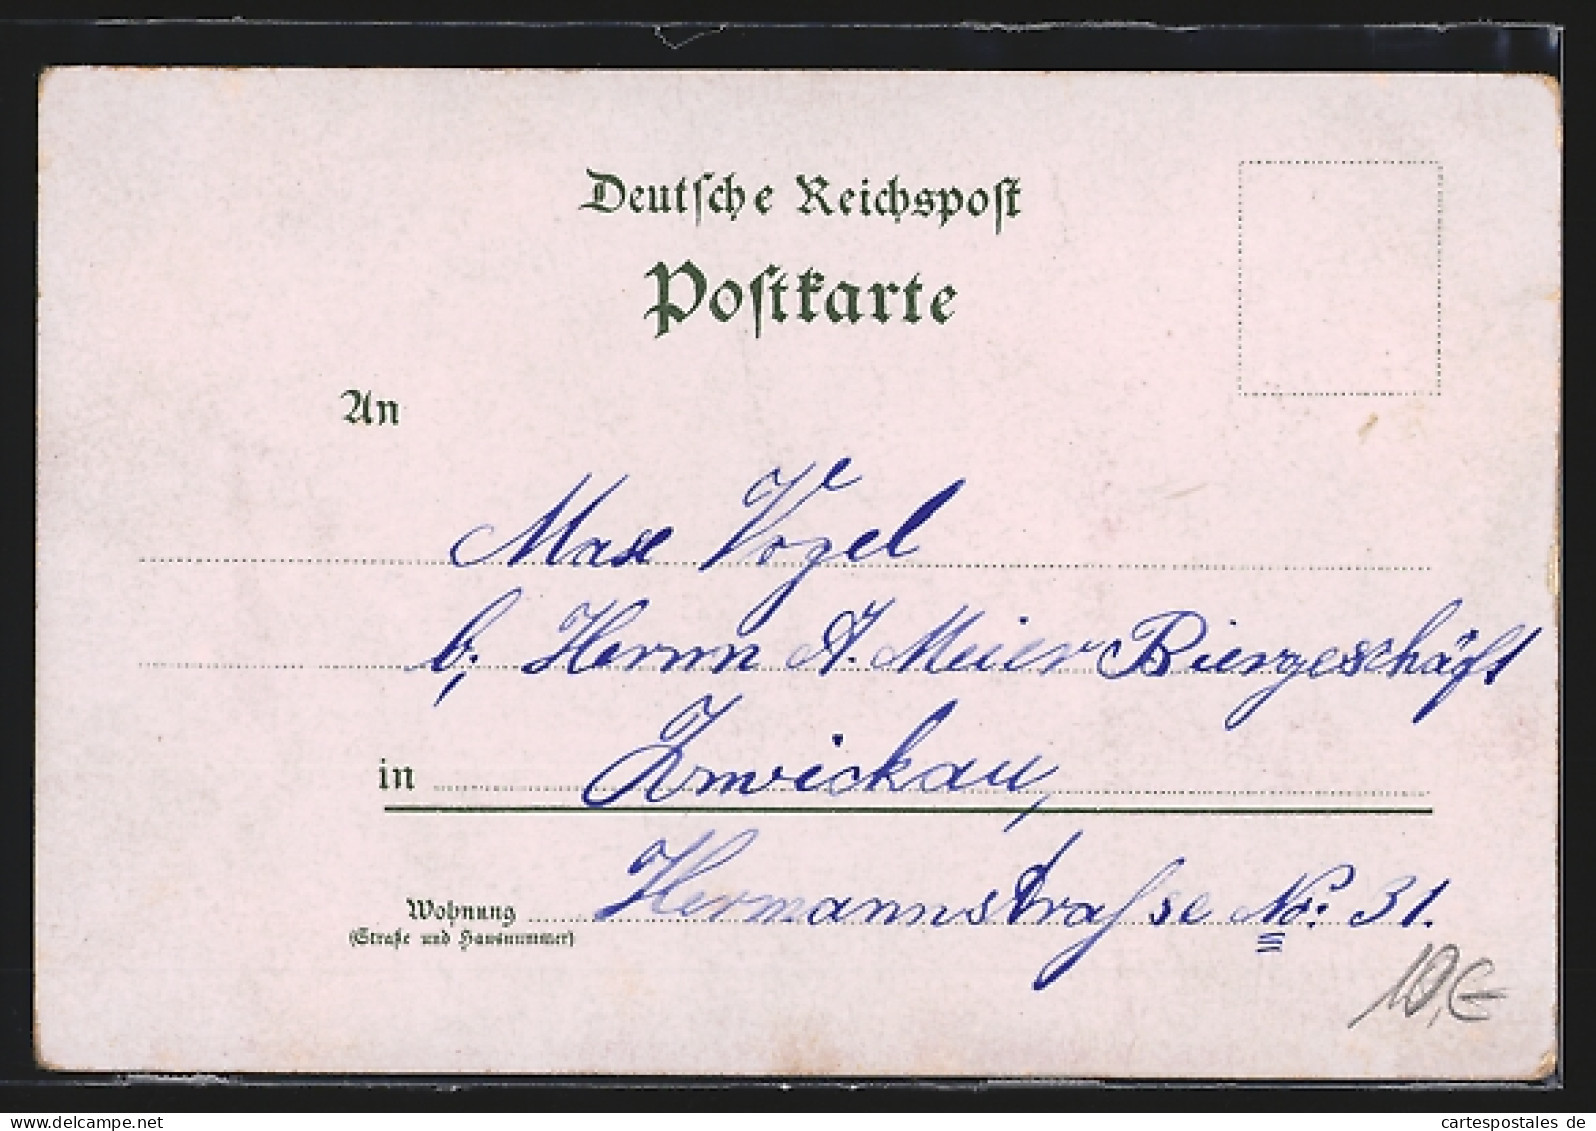 Deutsche Reichspost
Postkarte
An
Max Vogel
b. Herrn A. Meier Biergeschäft
in Zwickau,
Wohnung Hermannstraſse No. 31.
(Straße und Hausnummer)
10,€
cartespostales de